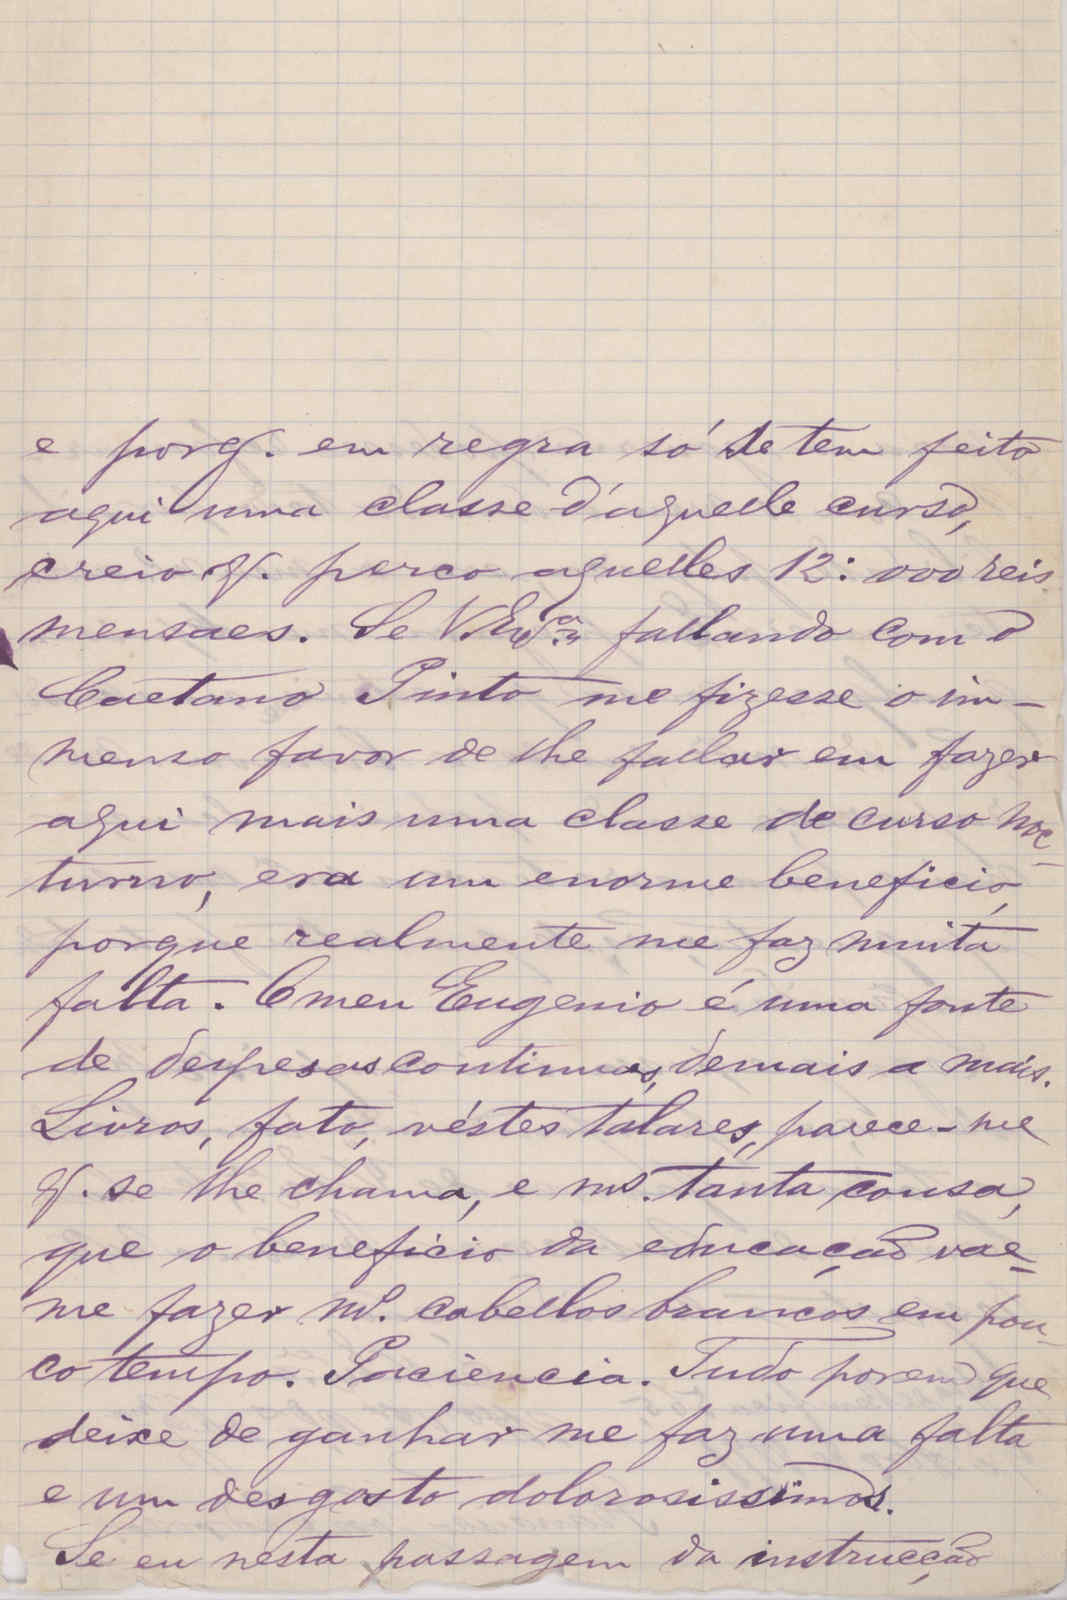 e porq. em regra só se tem feito
aqui uma classe d'aquelle curso,
creio q. perco aquelles 12:000 reis
mensaes. Se V. Ex.cia fallando com o
Caetano Pinto me fizesse o im-
menso favor de lhe fallar em fazer
aqui mais uma classe de curso noc-
turno, era um enorme beneficio,
porque realmente me faz muita
falta. O meu Eugenio é uma fonte
de despesas continuas, demais a mais.
Livros, fato, véstes talares, parece-me
q. se lhe chama, e m.ta tanta cousa,
que o beneficio da educação vae-
me fazer m.tos cabellos brancos em pou-
co tempo. Paciencia. Tudo porem que
deixe de ganhar me faz uma falta
e um desgosto dolorosissimos.
Se eu nesta passagem da instrucção